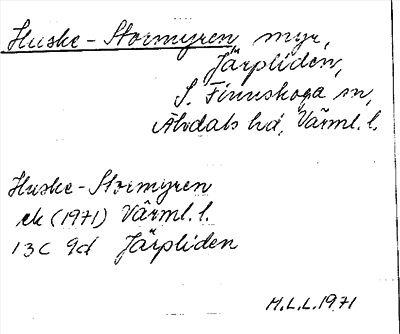 Huske-Stormyren myr,
Järpliden,
S. Finnskoga sn,
Älvdals hd, Värml. l.
Huske-Stormyren
ek (1971) Värml. l.
13C 9d Järpliden
M.L.L. 1971